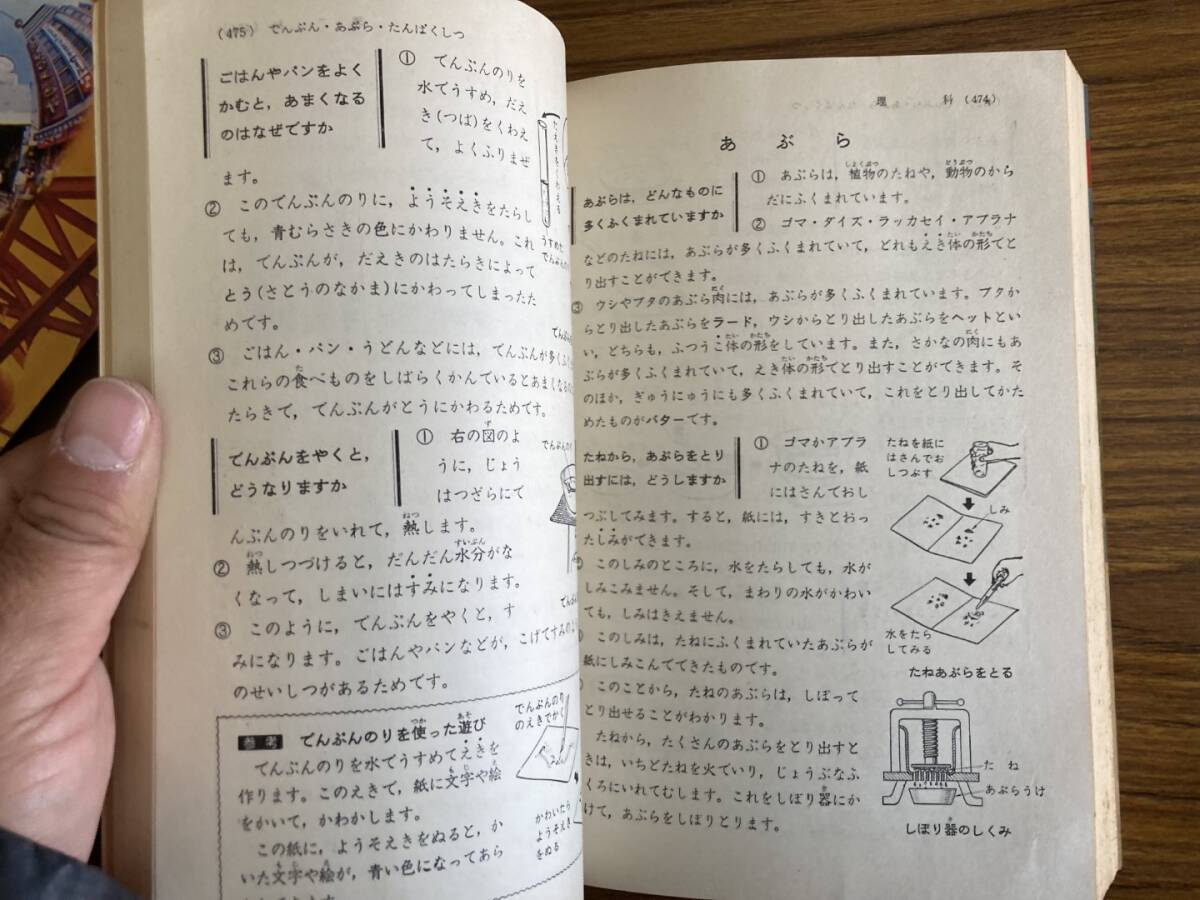 (475) でんぷん・あぶら・たんぱくしつ
ごはんやパンをよく
かむと，あまくなる
のはなぜですか
① でんぷんのりを
水でうすめ，だえ
き(つば)をくわえ
て，よくふりまぜ
ます。
② このでんぷんのりに，ようそえきをたらし
ても，青むらさきの色にかわりません。これ
は，でんぷんが，だえきのはたらきによって
とう(さとうのなかま)にかわってしまったた
めです。
③ ごはん・パン・うどんなどには，でんぷんが多く
これらの食べものをしばらくかんでいるとあまくなる
たらきで，でんぷんがとうにかわるためです。
だえきをくわえる
うすめた
でんぷん
でんぷんをやくと，
どうなりますか
① 右の図のよ
うに，じょう
はつざらにで
んぷんのりをいれて，熱します。
② 熱しつづけると，だんだん水分がな
くなって，しまいにはすみになります。
③ このように，でんぷんをやくと，す
みになります。ごはんやパンなどが，こげてすみの
のせいしつがあるためです。
参考 でんぷんのりを使った遊び
でんぷんのりを水でうすめてえきを
作ります。このえきで，紙に文字や絵
をかいて，かわかします。
この紙に，ようそえきをぬると，か
いた文字や絵が，青い色になってあら
でんぷんのり
のえきでかく
かわいたら
ようそえき
をぬる
理 科 (474)
あ ぶ ら
あぶらは，どんなものに
多くふくまれていますか
① あぶらは，植物のたねや，動物のから
だにふくまれています。
② ゴマ・ダイズ・ラッカセイ・アブラナ
などのたねには，あぶらが多くふくまれていて，どれもえき体の形でと
り出すことができます。
③ ウシやブタのあぶら肉には，あぶらが多くふくまれています。ブタか
らとり出したあぶらをラード，ウシからとり出したあぶらをヘットとい
い，どちらも，ふつうこ体の形をしています。また，さかなの肉にもあ
ぶらが多くふくまれていて，えき体の形でとり出すことができます。そ
のほか，ぎゅうにゅうにも多くふくまれていて，これをとり出してかた
めたものがバターです。
たねから，あぶらをとり
出すには，どうしますか
① ゴマかアブラ
ナのたねを，紙
にはさんでおし
つぶしてみます。すると，紙には，すきとおっ
たしみができます。
このしみのところに，水をたらしても，水が
しみこみません。そして，まわりの水がかわい
ても，しみはきえません。
このしみは，たねにふくまれていたあぶらが
紙にしみこんでできたものです。
このことから，たねのあぶらは，しぼって
とり出せることがわかります。
たねから，たくさんのあぶらをとり出すと
きは，いちどたねを火でいり，じょうぶなふ
くろにいれてむします。これをしぼり器にか
けて，あぶらをしぼりとります。
たねを紙に
はさんでお
しつぶす
しみ
水をたら
してみる
たねあぶらをとる
たね
あぶらうけ
しぼり器のしくみ